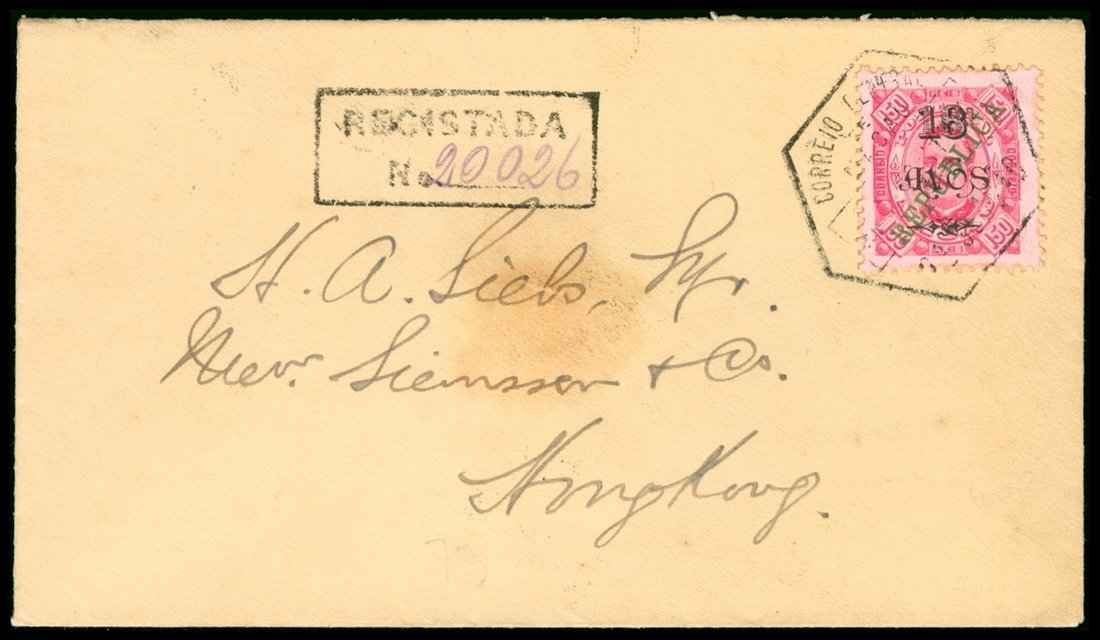 REGISTADA
No 20026
CORREIO GERAL
150
18
AVOS
REPUBLICA
CORREIO
150 150
H. A. Siebs, Esqr.
Messrs. Siemssen & Co.
Hongkong.